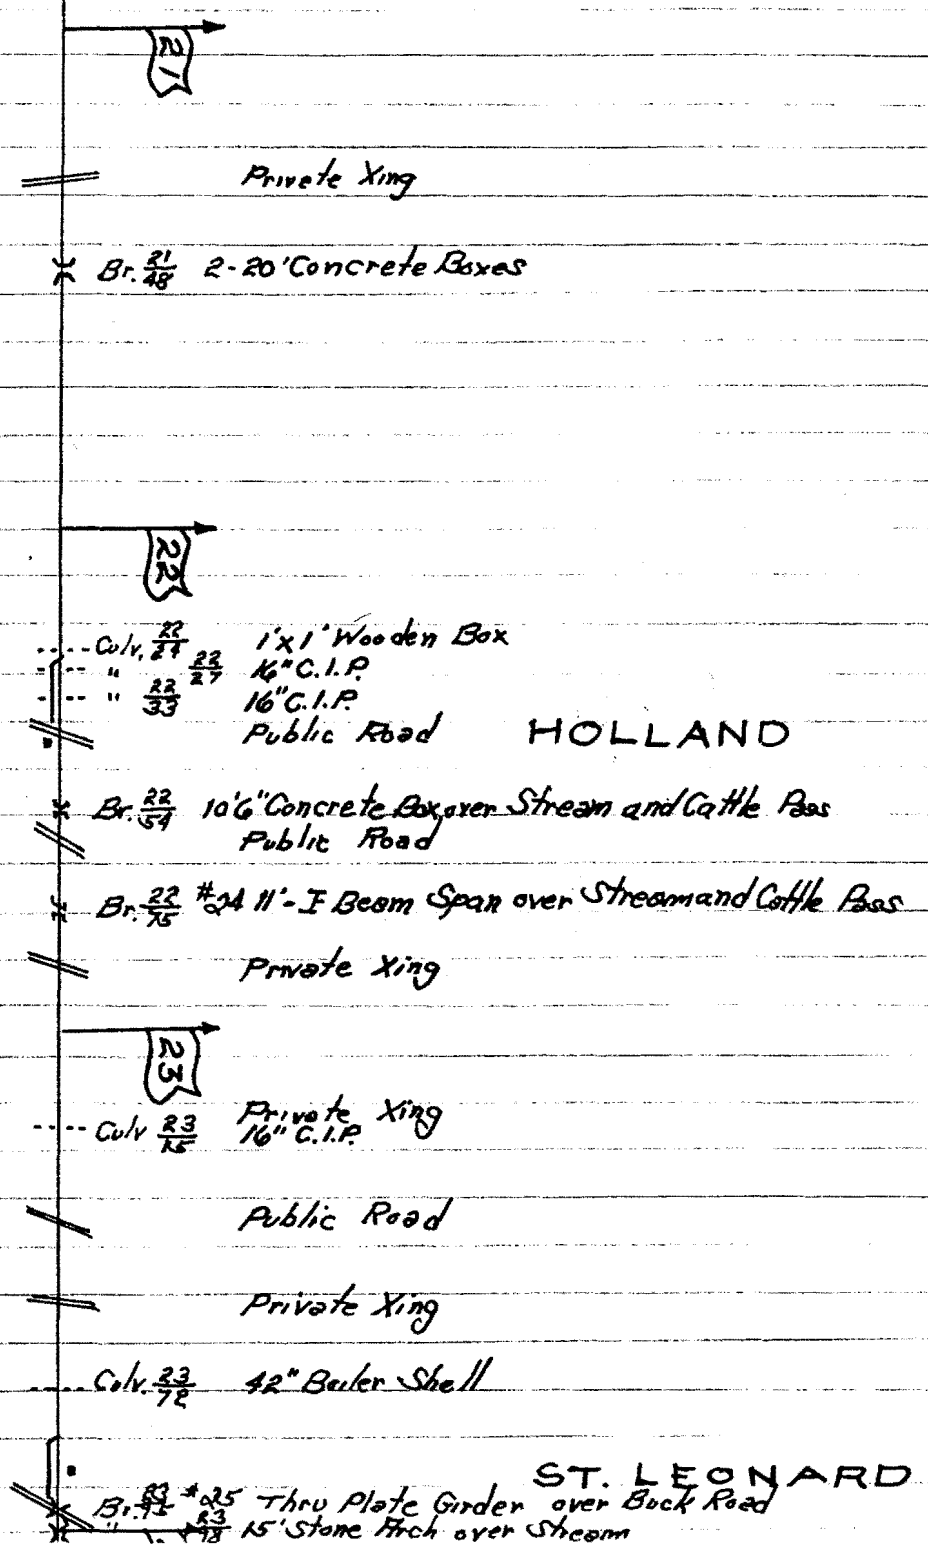 21
Private Xing
Br. 21/48 2-20' Concrete Boxes
22
Culv. 22/24 1'x1' Wooden Box
" 22/27 16" C.I.P.
" 22/33 16" C.I.P.
Public Road HOLLAND
Br. 22/54 10'6" Concrete Box over Stream and Cattle Pass
Public Road
Br. 22/75 #24 11'- I Beam Span over Stream and Cattle Pass
Private Xing
23
Private Xing
Culv 23/15 16" C.I.P.
Public Road
Private Xing
Culv. 23/72 42" Boiler Shell
ST. LEONARD
Br. 23/95 #25 Thru Plate Girder over Back Road
" 23/98 15' Stone Arch over Stream